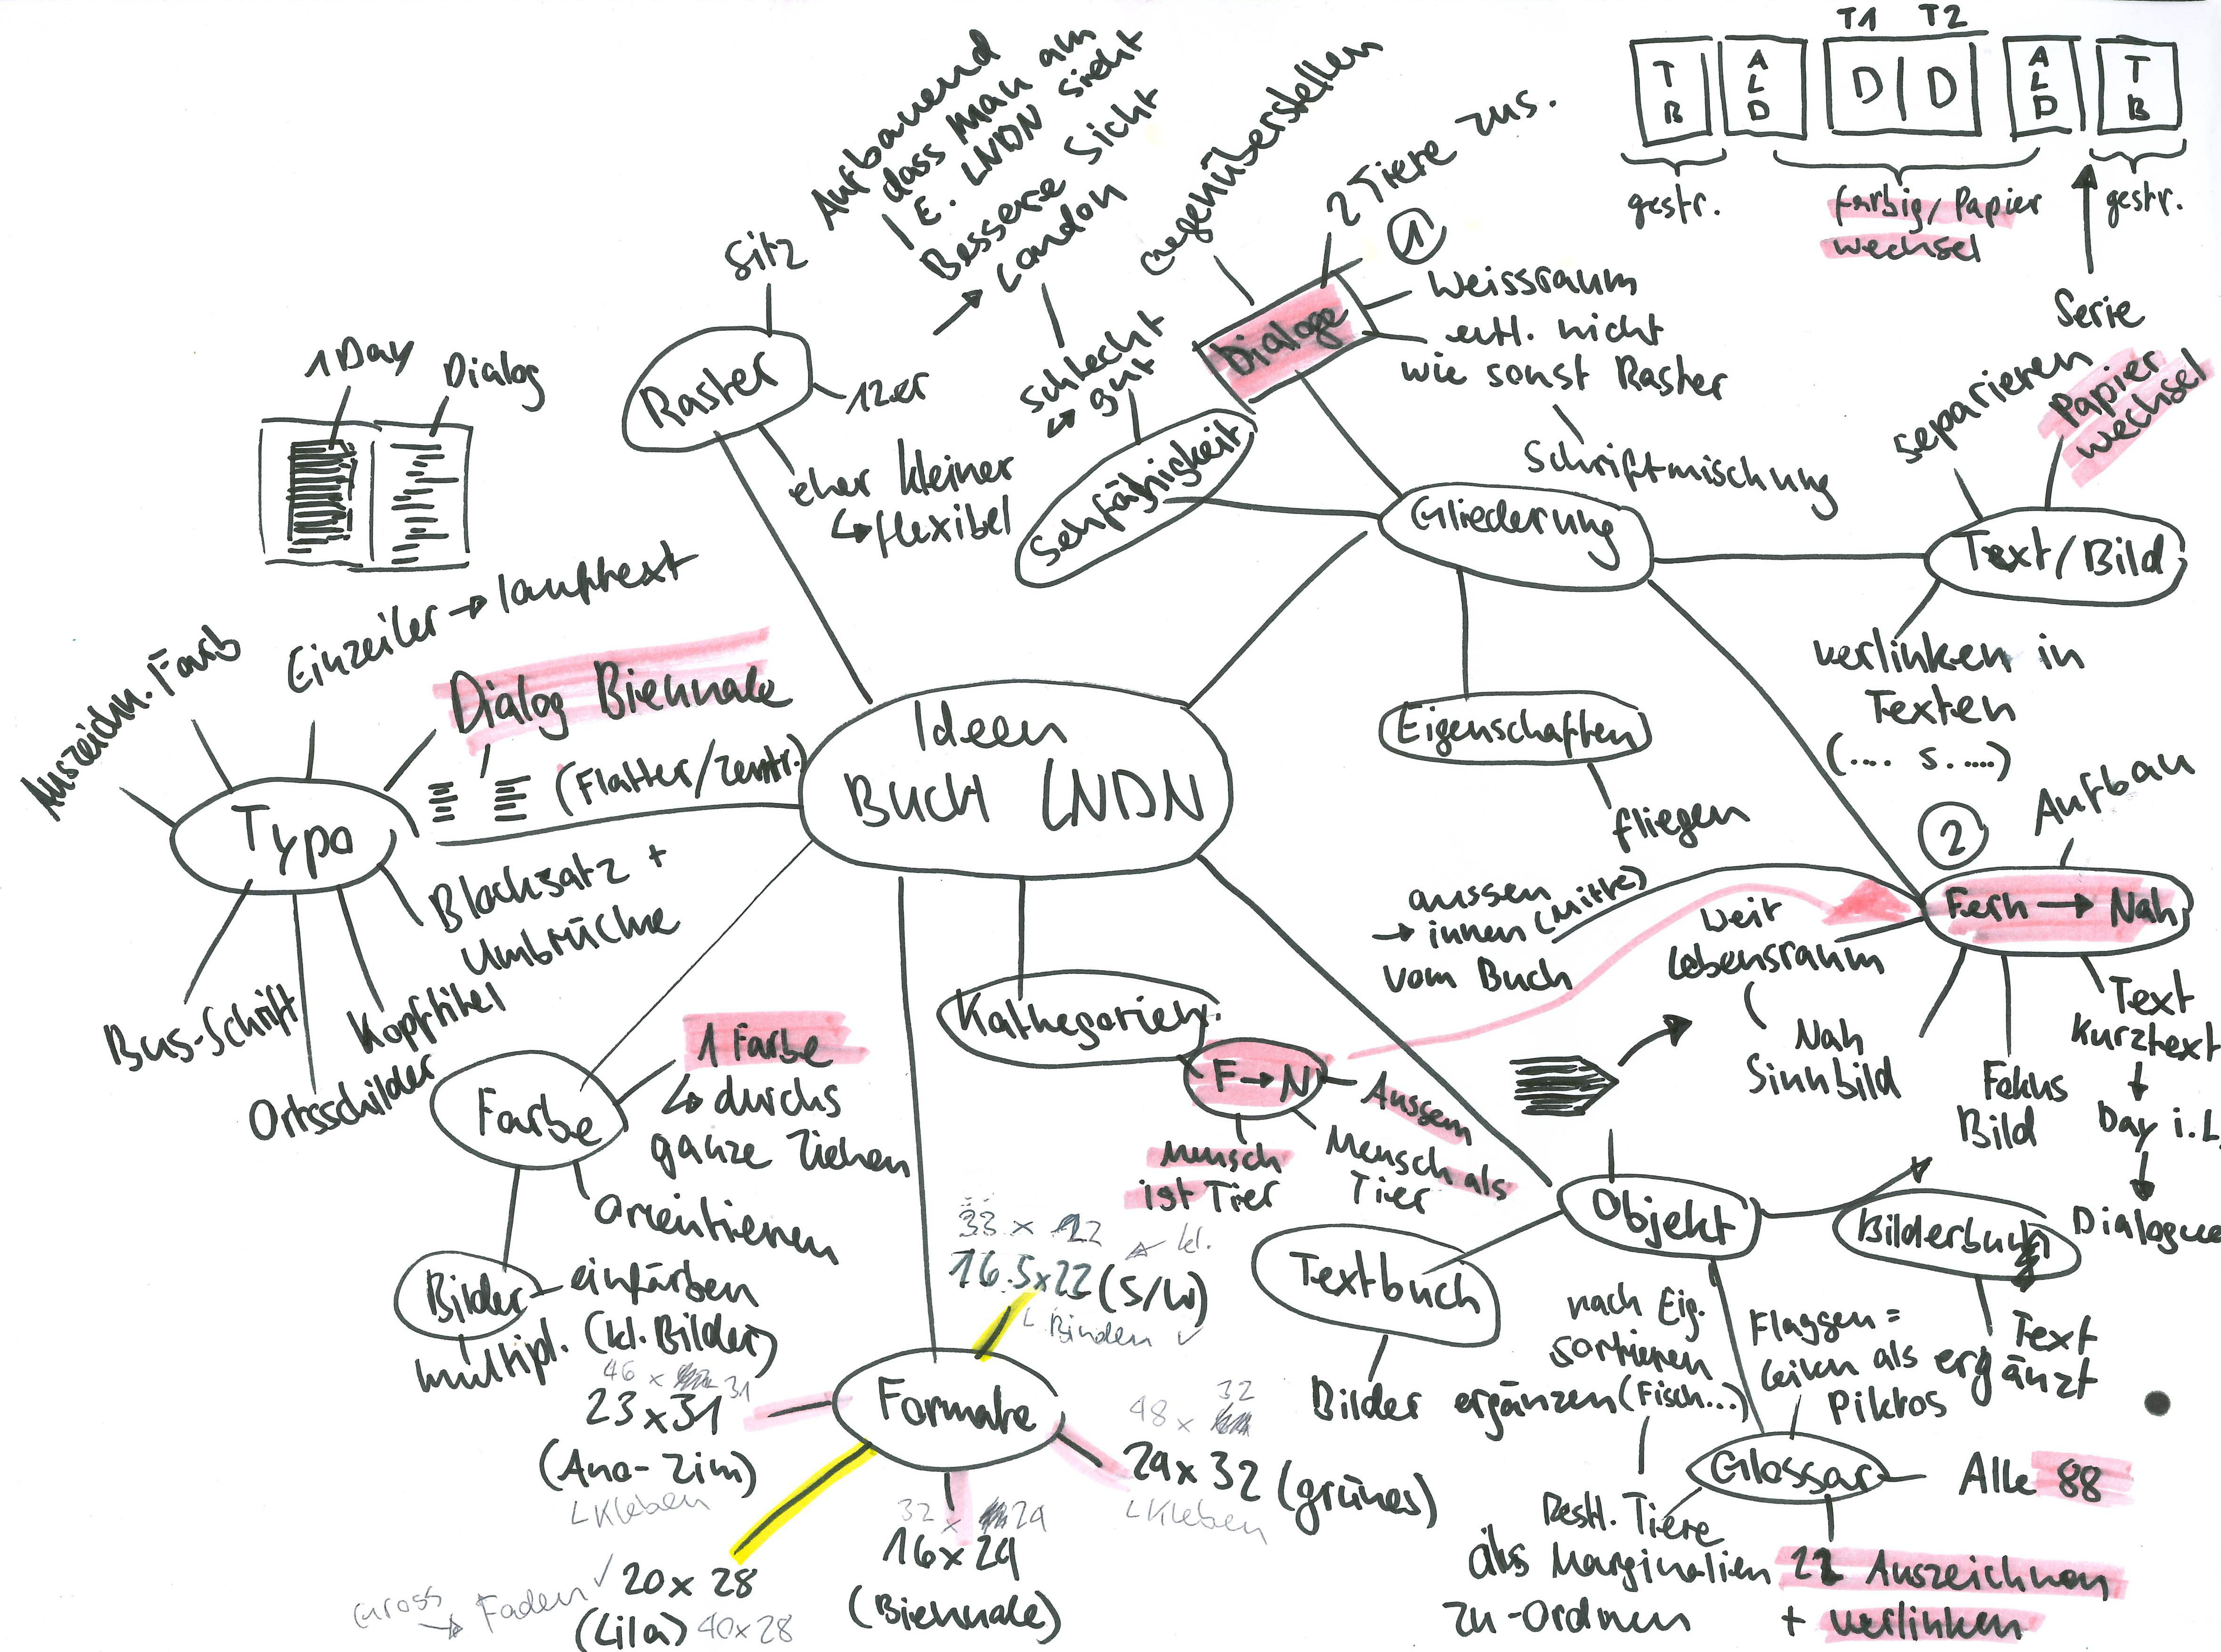 T1 T2
T
B
A
L
D
D | D
A
L
D
T
B
gestr.
farbig/Papier
wechsel
gestr.
Serie
separieren
Papier
wechsel
Text/Bild
verlinken in
Texten
(.... s. ....)
Aufbauend
dass man am
E. LNDN sieht
Bessere Sicht
→ London
schlecht
↔ gut
Sehfähigkeit
Gegenüberstellen
2 Tiere zus.
1
Dialoge
Weissraum
evtl. nicht
wie sonst Raster
Schriftmischung
Gliederung
Eigenschaften
fliegen
Sitz
Raster
12er
eher kleiner
↳ flexibel
1 Day
Dialog
Einzeiler → Lauftext
Auszeichn. Farb
Dialog Biennale
(Flatter/Zentr.)
Typo
Blocksatz +
Umbrüche
Kopftitel
Ortsschilder
Bus-Schrift
Ideen
Buch LNDN
2
Aufbau
Fern → Nah
aussen
→ innen (Mitte)
vom Buch
Weit
Lebensraum
Nah
Sinnbild
Fokus
Bild
Text
Kurztext
↓
Day i. L.
↓
Dialogue
Kathegorien
F → N
Aussen
Mensch
ist Tier
Mensch als
Tier
Farbe
1 Farbe
↳ durchs
ganze Ziehen
orientieren
Bilder
einfärben
(kl. Bilder)
multipl.
Formate
33 x 22
16.5x22 (S/W)
kl.
Binden ✓
46 x 31
23x31
(Ana-Zim)
Kleben
Gross
→ Faden ✓
20x28
(Lila) 40x28
32 x 24
16x24
(Biennale)
48 x 32
24x32 (grünes)
Kleben
Objekt
Textbuch
Bilder ergänzen
Bilderbuch
Text
ergänzt
nach Eig.
sortieren
(Fisch...)
Flaggen =
als
Piktos
Glossar
Alle 88
Restl. Tiere
als Marginalien
zu-Ordnen
22 Auszeichnen
+ verlinken